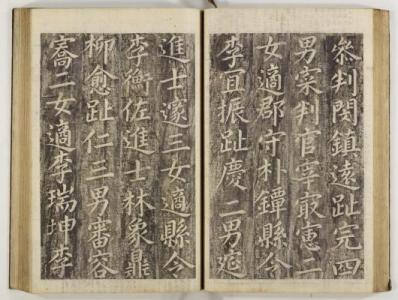 叅判閔鎮遠趾完四
男寀判官宰㝡憲二
女適郡守朴鐔縣令
李冝振趾慶二男
進士邃三女適縣令
李衡佐進士林象鼎
柳愈趾仁三男審容
二女適李瑞坤李